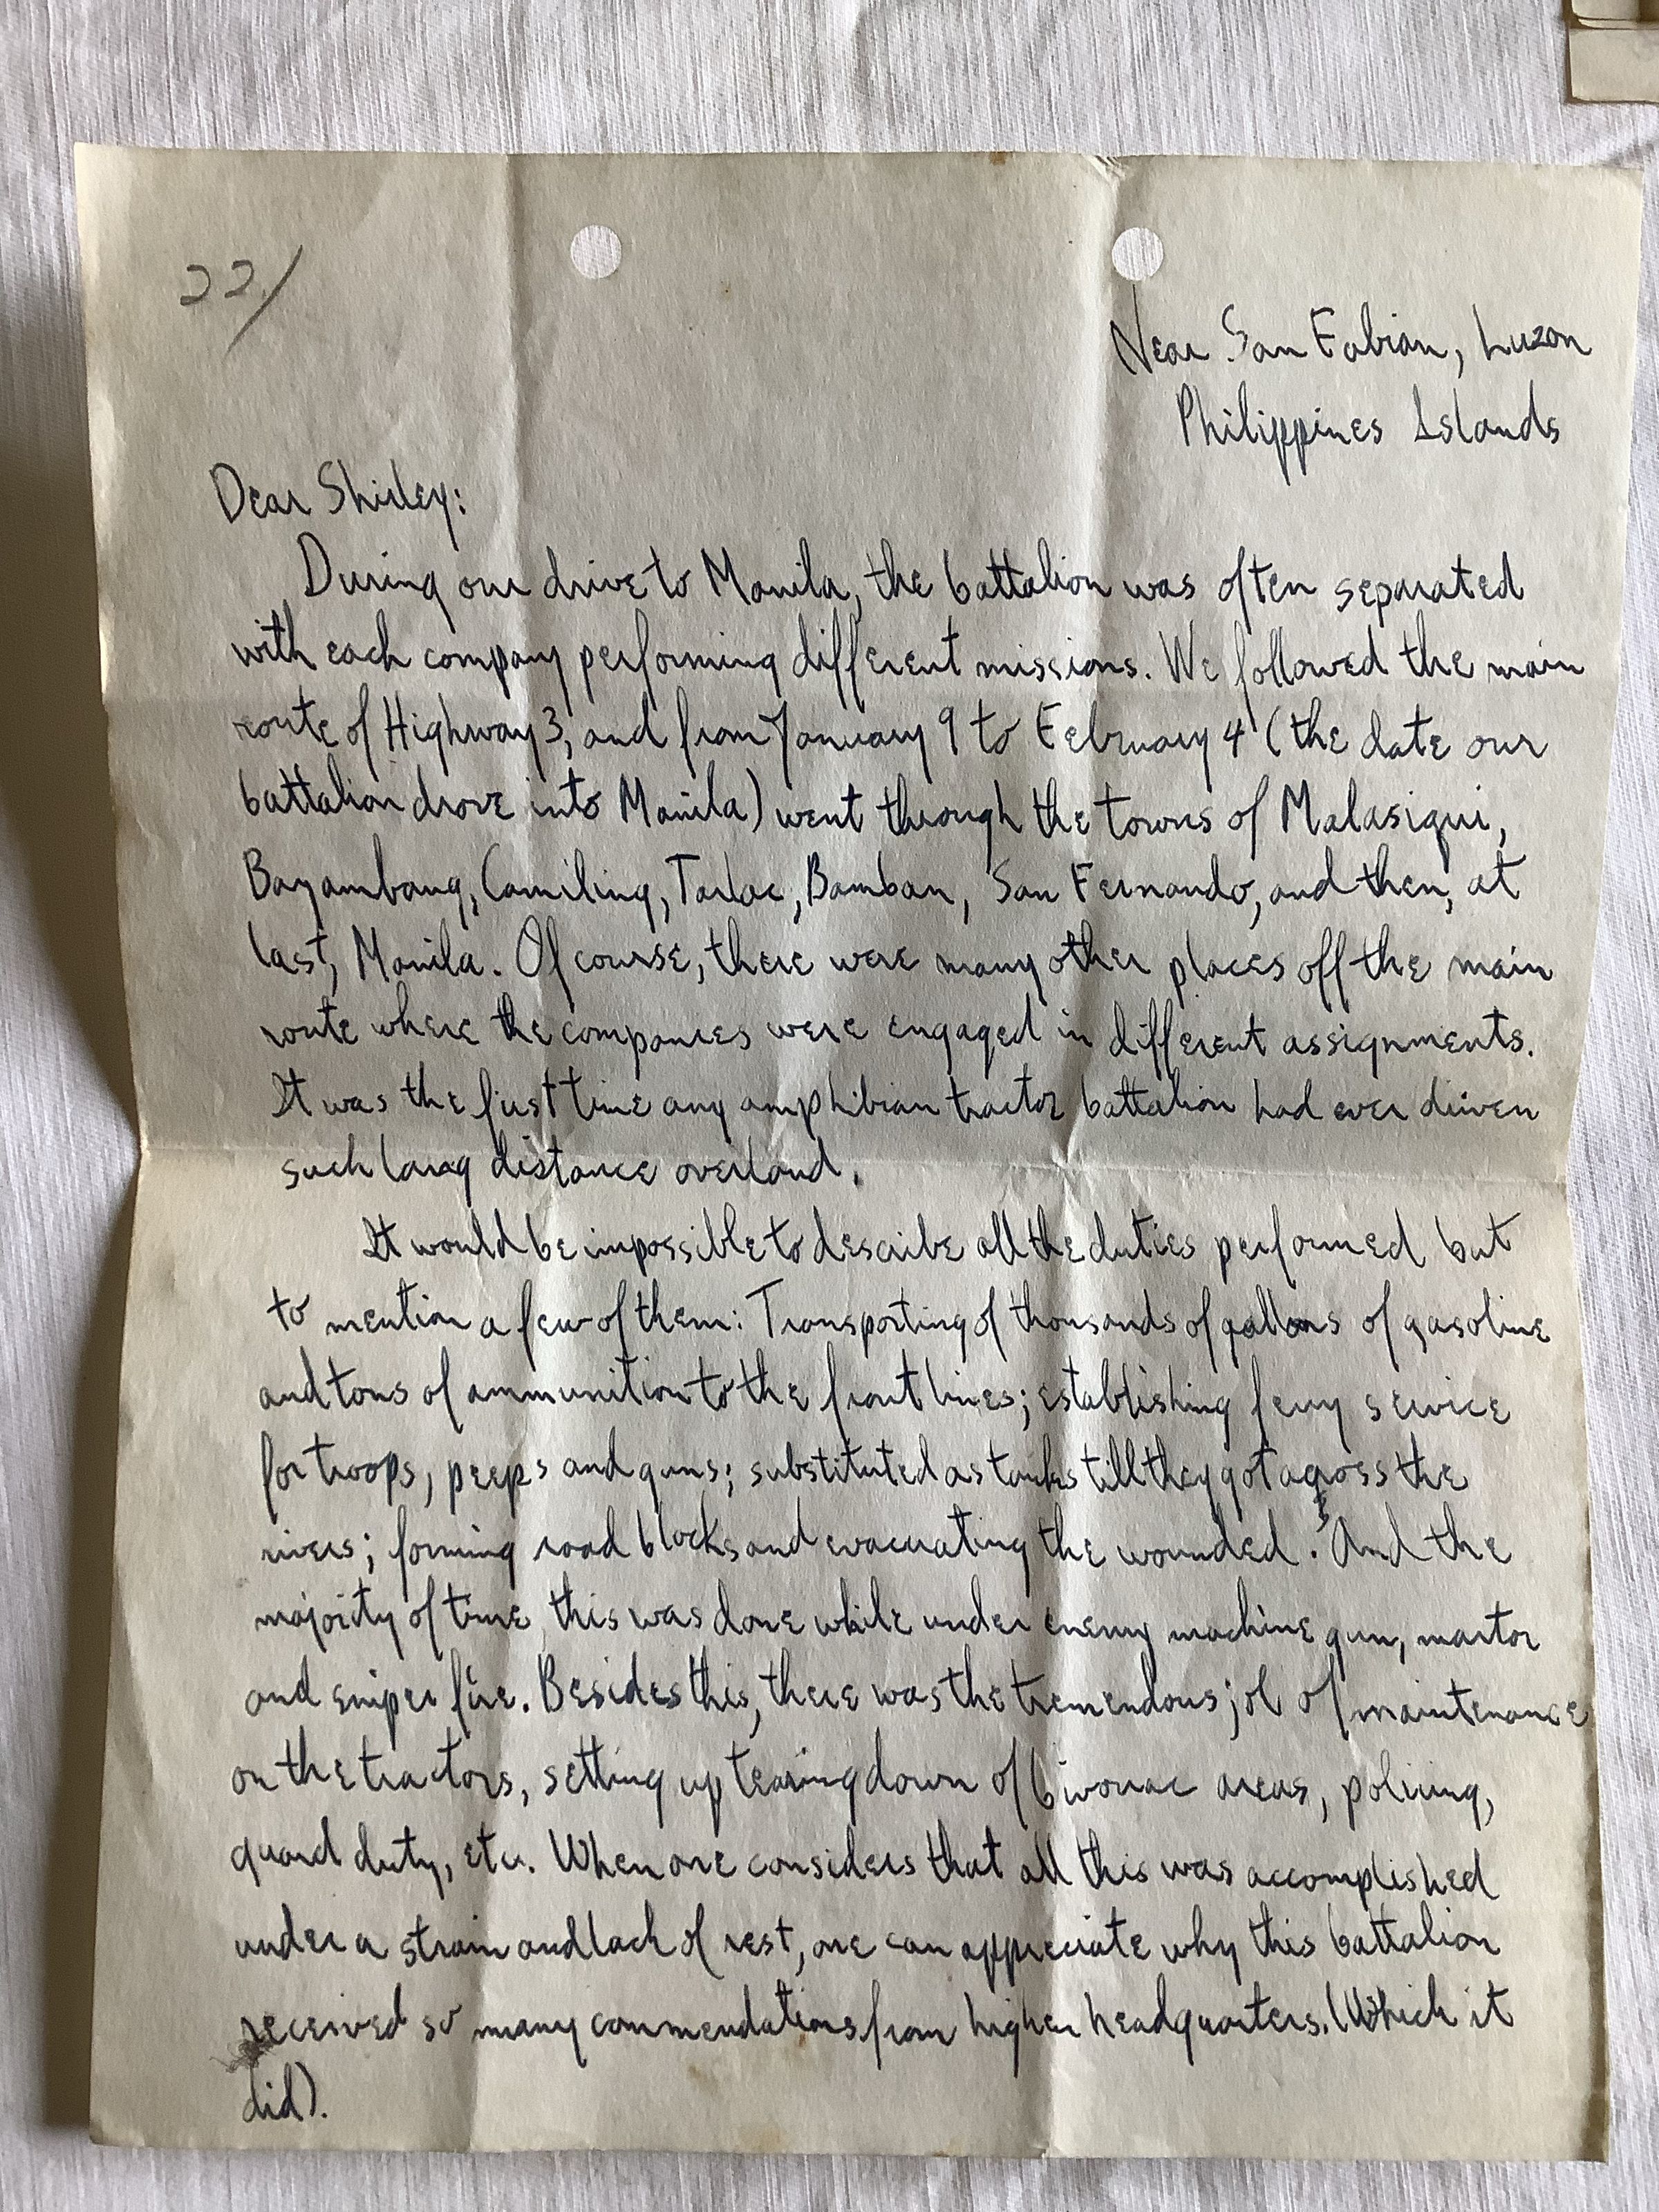 22/
Near San Fabian, Luzon
Philippines Islands
Dear Shirley:
During our drive to Manila, the battalion was often separated
with each company performing different missions. We followed the main
route of Highway 3, and from January 9 to February 4 (the date our
battalion drove into Manila) went through the towns of Malasiqui,
Bayambang, Camiling, Tarlac, Bamban, San Fernando, and then, at
last, Manila. Of course, there were many other places off the main
route where the companies were engaged in different assignments.
It was the first time any amphibian tractor battalion had ever driven
such long distance overland.
It would be impossible to describe all the duties performed but
to mention a few of them: Transporting of thousands of gallons of gasoline
and tons of ammunition to the front lines; establishing ferry service
for troops, peeps and guns; substituted as tanks till they got across the
rivers; forming road blocks and evacuating the wounded. And the
majority of time, this was done while under enemy machine gun, mortor
and sniper fire. Besides this, there was the tremendous job of maintenance
on the tractors, setting up tearing down of bivouac areas, policing,
guard duty, etc. When one considers that all this was accomplished
under a strain and lack of rest, one can appreciate why this battalion
received so many commendations from higher headquarters. (Which it
did).